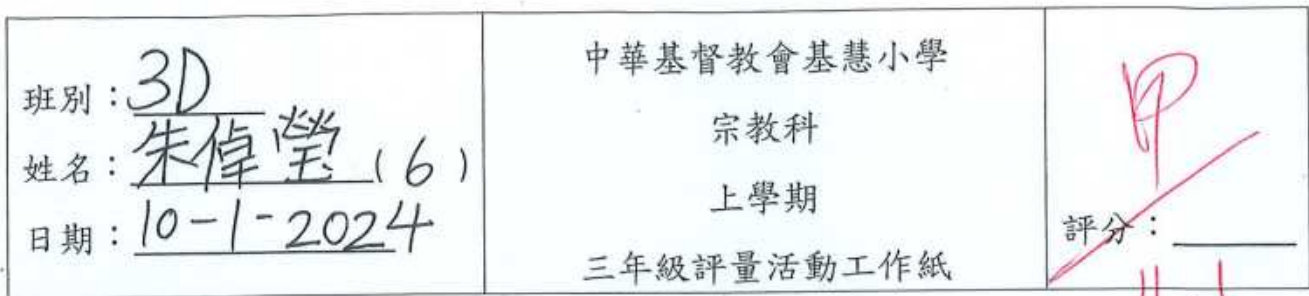 班別：3D
姓名：朱倬瑩(6)
日期：10-1-2024
中華基督教會基慧小學
宗教科
上學期
三年級評量活動工作紙
甲
評分：